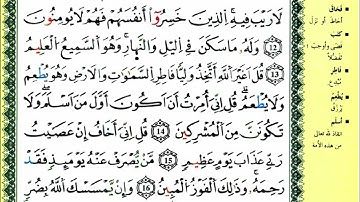 لَا رَيْبَ فِيهِ ۚ الَّذِينَ خَسِرُوٓا۟ أَنفُسَهُمْ فَهُمْ لَا يُؤْمِنُونَ
(12) وَلَهُۥ مَا سَكَنَ فِى الَّيْلِ وَالنَّهَارِ ۚ وَهُوَ السَّمِيعُ الْعَلِيمُ
(13) قُلْ أَغَيْرَ اللَّهِ أَتَّخِذُ وَلِيًّا فَاطِرِ السَّمَٰوَٰتِ وَالْأَرْضِ وَهُوَ يُطْعِمُ
وَلَا يُطْعَمُ ۗ قُلْ إِنِّىٓ أُمِرْتُ أَنْ أَكُونَ أَوَّلَ مَنْ أَسْلَمَ ۖ وَلَا
تَكُونَنَّ مِنَ الْمُشْرِكِينَ (14) قُلْ إِنِّىٓ أَخَافُ إِنْ عَصَيْتُ
رَبِّى عَذَابَ يَوْمٍ عَظِيمٍ (15) مَّن يُصْرَفْ عَنْهُ يَوْمَئِذٍ فَقَدْ
رَحِمَهُۥ ۚ وَذَٰلِكَ الْفَوْزُ الْمُبِينُ (16) وَإِن يَمْسَسْكَ اللَّهُ بِضُرٍّ
فَحَاقَ
أحاط أو نزل
كَتَبَ
قضى وأوجب
تفضلاً
فَاطِرِ
مبدع
يُطْعِمُ
يرزق
أَسْلَمَ
انقاد لله تعالى
من هذه الأمة